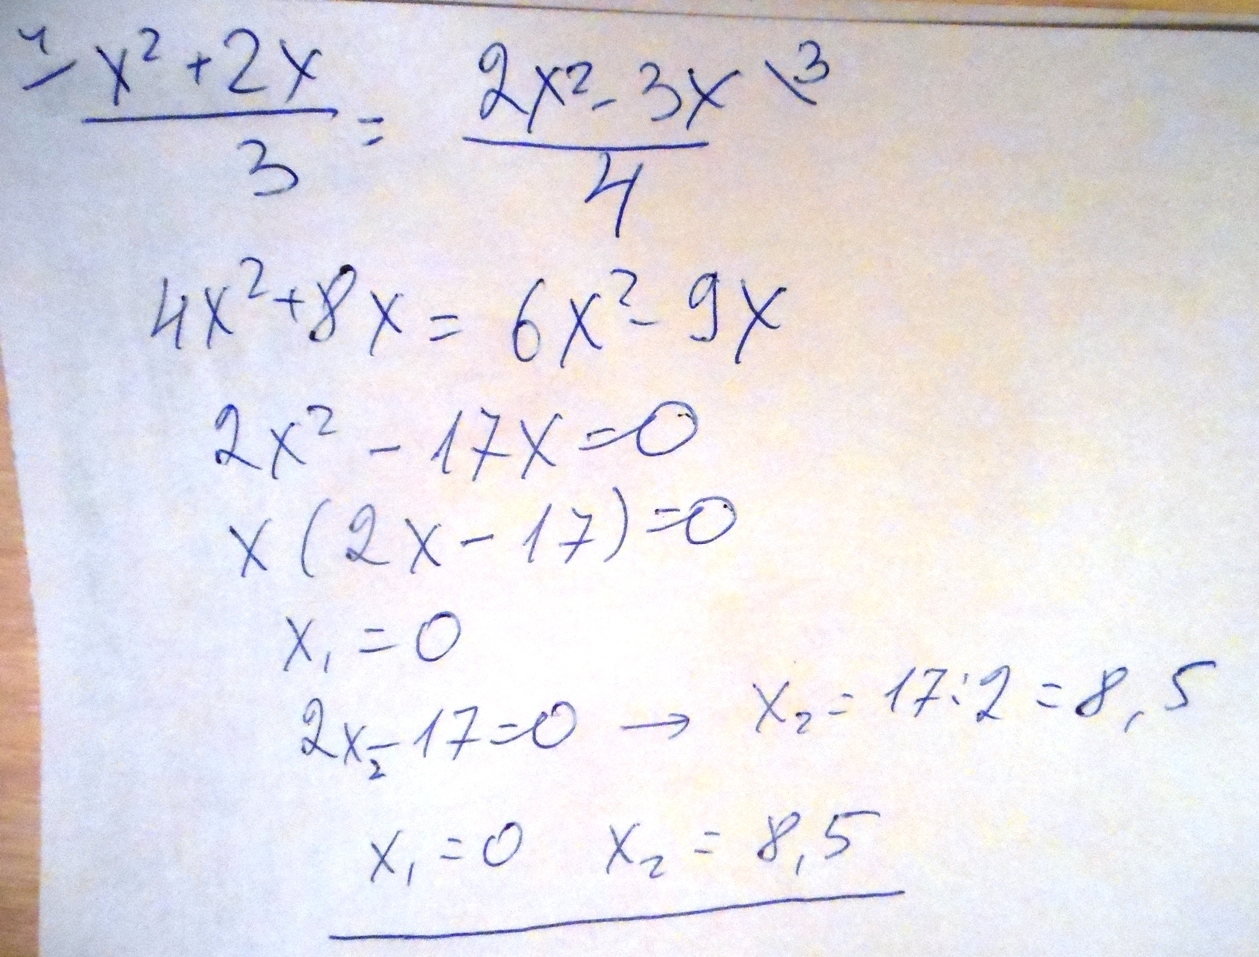 4/ x² + 2x / 3 = 2x² - 3x \3 / 4
4x² + 8x = 6x² - 9x
2x² - 17x = 0
x(2x - 17) = 0
x₁ = 0
2x₂ - 17 = 0 → x₂ = 17:2 = 8,5
x₁ = 0 x₂ = 8,5